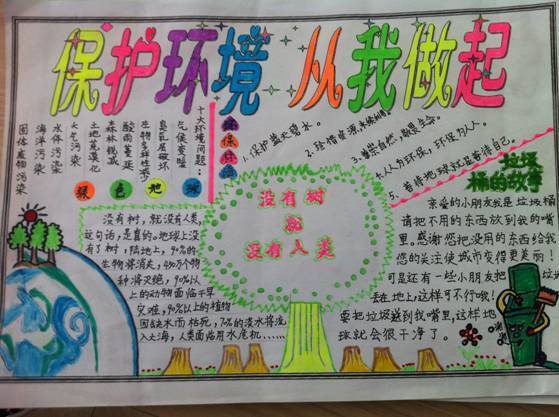 保护环境 从我做起
十大环境问题：
气候变暖
臭氧层破坏
生物多样性减少
酸雨蔓延
森林锐减
土地荒漠化
大气污染
水体污染
海洋污染
固体废物污染
绿色地球
1、保护蓝天碧水。
3、善待自然，敬畏生命。
4、人人为环保，环保为人人。
5、善待地球就是善待自己。
没有树
就
没有人类
没有树，就没有人类，
这句话，是真的。地球上没
有了树，陆地上，90%的
生物将消失，450万个物
种将灭绝，90%以
上的动物面临干旱
灾难，90%以上的植物
因缺水而枯死，70%的淡水将流
入大海，人类面临用水危机……
垃圾
桶的故事
亲爱的小朋友我是垃圾桶
请把不用的东西放到我的嘴
里。感谢您把没用的东西给我
您的关注使城市变得更美丽！
可是还有一些小朋友把垃圾
丢在地上，这样可不行哦！
要把垃圾藏到我嘴里，这样地
球就会很干净了。